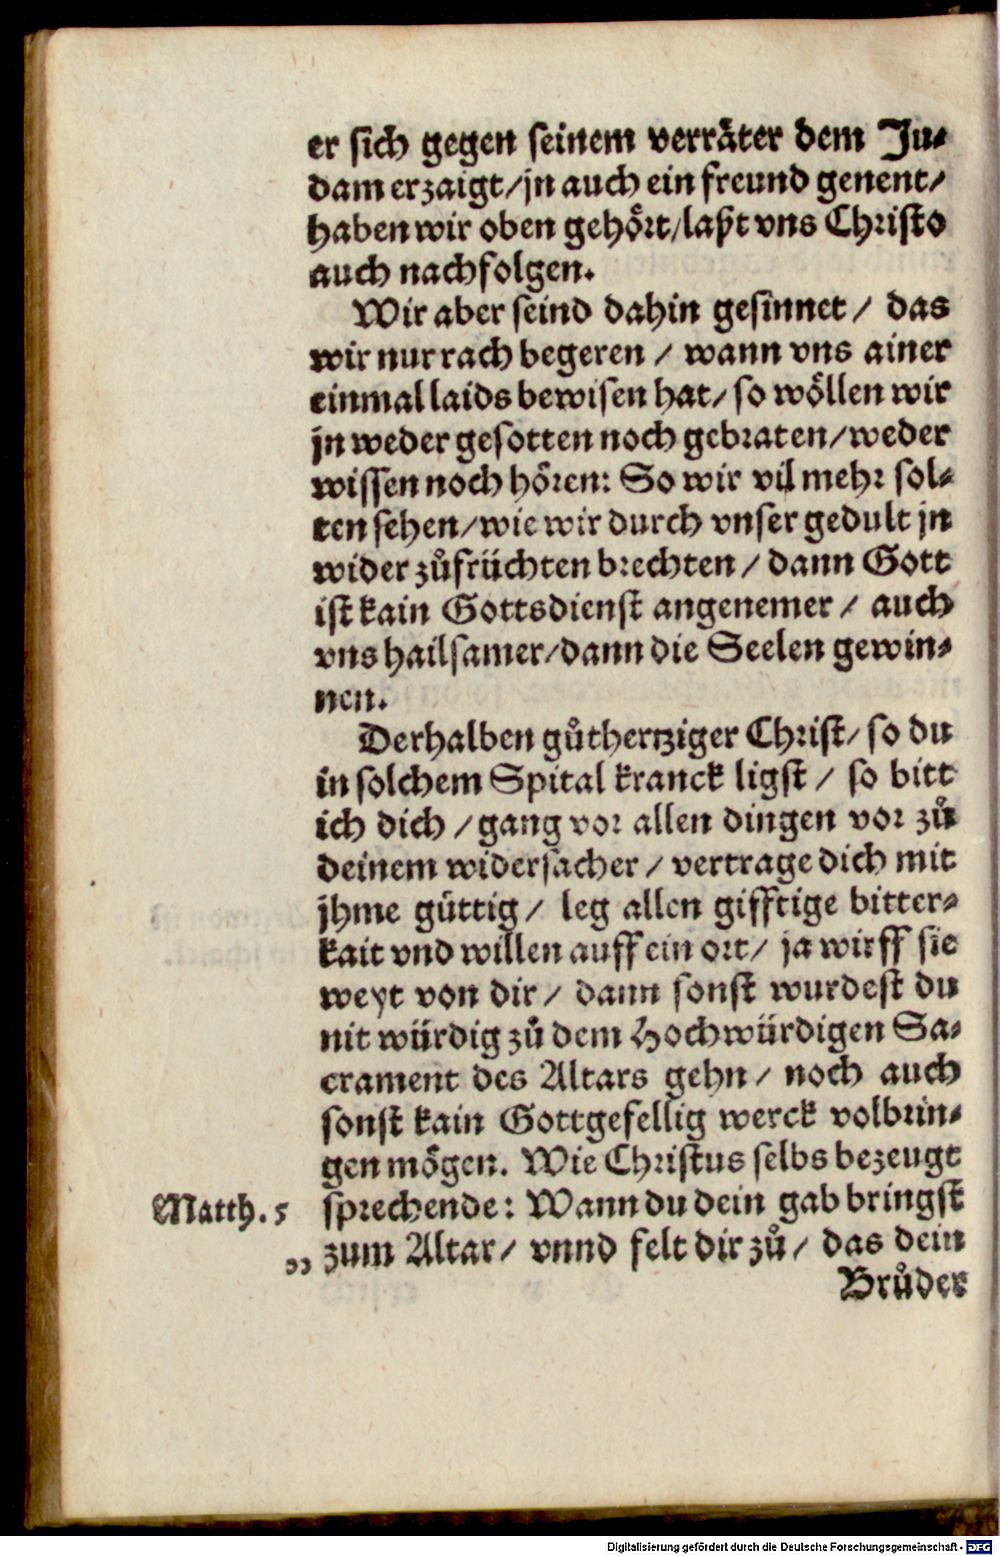 er sich gegen seinem verräter dem Ju-
dam erzaigt/jn auch ein freund genent/
haben wir oben gehört/laßt vns Christo
auch nachfolgen.
Wir aber seind dahin gesinnet / das
wir nur rach begeren / wann vns ainer
einmal laids bewisen hat/ so wöllen wir
jn weder gesotten noch gebraten/weder
wissen noch hören: So wir vil mehr sol-
ten sehen/wie wir durch vnser gedult jn
wider zůfrüchten brechten / dann Gott
ist kain Gottsdienst angenemer / auch
vns hailsamer/dann die Seelen gewin-
nen.
Derhalben gůthertziger Christ/ so du
in solchem Spital kranck ligst / so bitt
ich dich / gang vor allen dingen vor zů
deinem widersacher / vertrage dich mit
jhme güttig / leg allen gifftige bitter-
kait vnd willen auff ein ort/ ja wirff sie
weyt von dir / dann sonst wurdest du
nit würdig zů dem Hochwürdigen Sa-
crament des Altars gehn / noch auch
sonst kain Gottgefellig werck volbrin-
gen mögen. Wie Christus selbs bezeugt
Matth. 5 sprechende: Wann du dein gab bringst
„ zum Altar / vnnd felt dir zů / das dein
Brůder
Digitalisierung gefördert durch die Deutsche Forschungsgemeinschaft - DFG